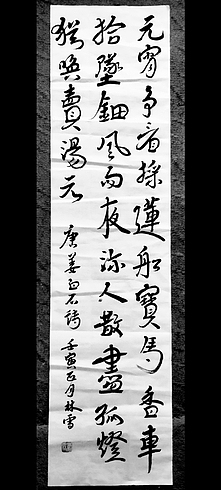 元宵争看採蓮船寶馬香車
拾墜鈿風雨夜深人散盡孤燈
猶喚賣湯元 姜白石詩 壬寅正月林雪